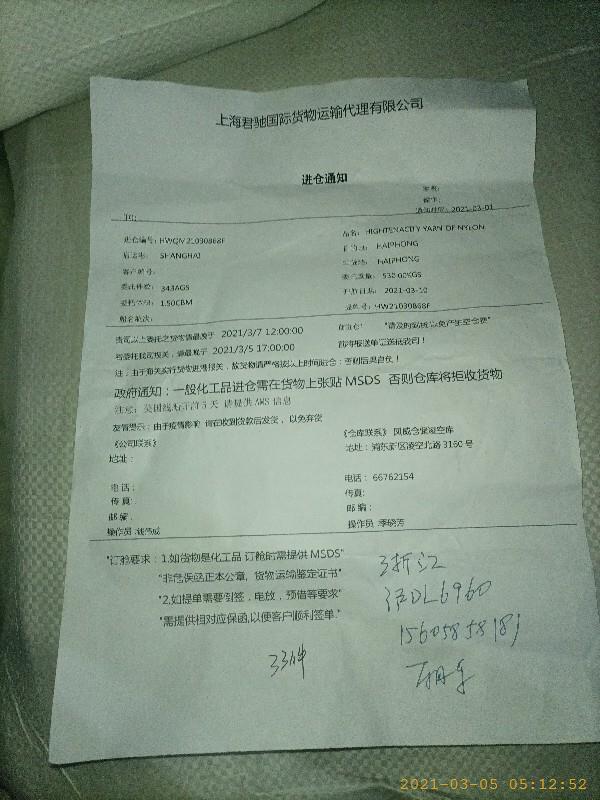 上海君驰国际货物运输代理有限公司
进仓通知
2021-03-01
进仓编号: HWQM21030868F
品名: HIGHTENACITY YARN OF NYLON
SHANGHAI
目的港: HAIPHONG
客户编号:
HAIPHONG
委托件数: 343AGS
委托重量: 530.00KGS
委托体积: 1.50CBM
开航日期: 2021-03-10
船名航次:
HW21030868F
贵司以上委托之货物请最晚于 2021/3/7 12:00:00
若委托我司报关，请最晚于 2021/3/5 17:00:00
注：由于海关实行货物进港报关，故货物请严格按以上时间进仓；否则后果自负！
政府通知：一般化工品进仓需在货物上张贴 MSDS 否则仓库将拒收货物
注意：美国线 5天 请提供 AMS 信息
友情提示：由于疫情影响 请在收到货款后发货，以免弃货
《公司联系》
《仓库联系》
地址：
地址：浦东新区凌空北路 3160 号
电话：
电话： 66762154
传真：
传真：
邮编：
邮编：
操作员:
操作员:季晓芳
"订舱要求：1.如货物是化工品 订舱时需提供 MSDS"
"非危保函正本公章，货物运输鉴定证书"
"2.如提单需要倒签，电放，预借等要求"
"需提供相对应保函,以便客户顺利签单."
浙江
沪DL6960
33件
2021-03-05 05:12:52